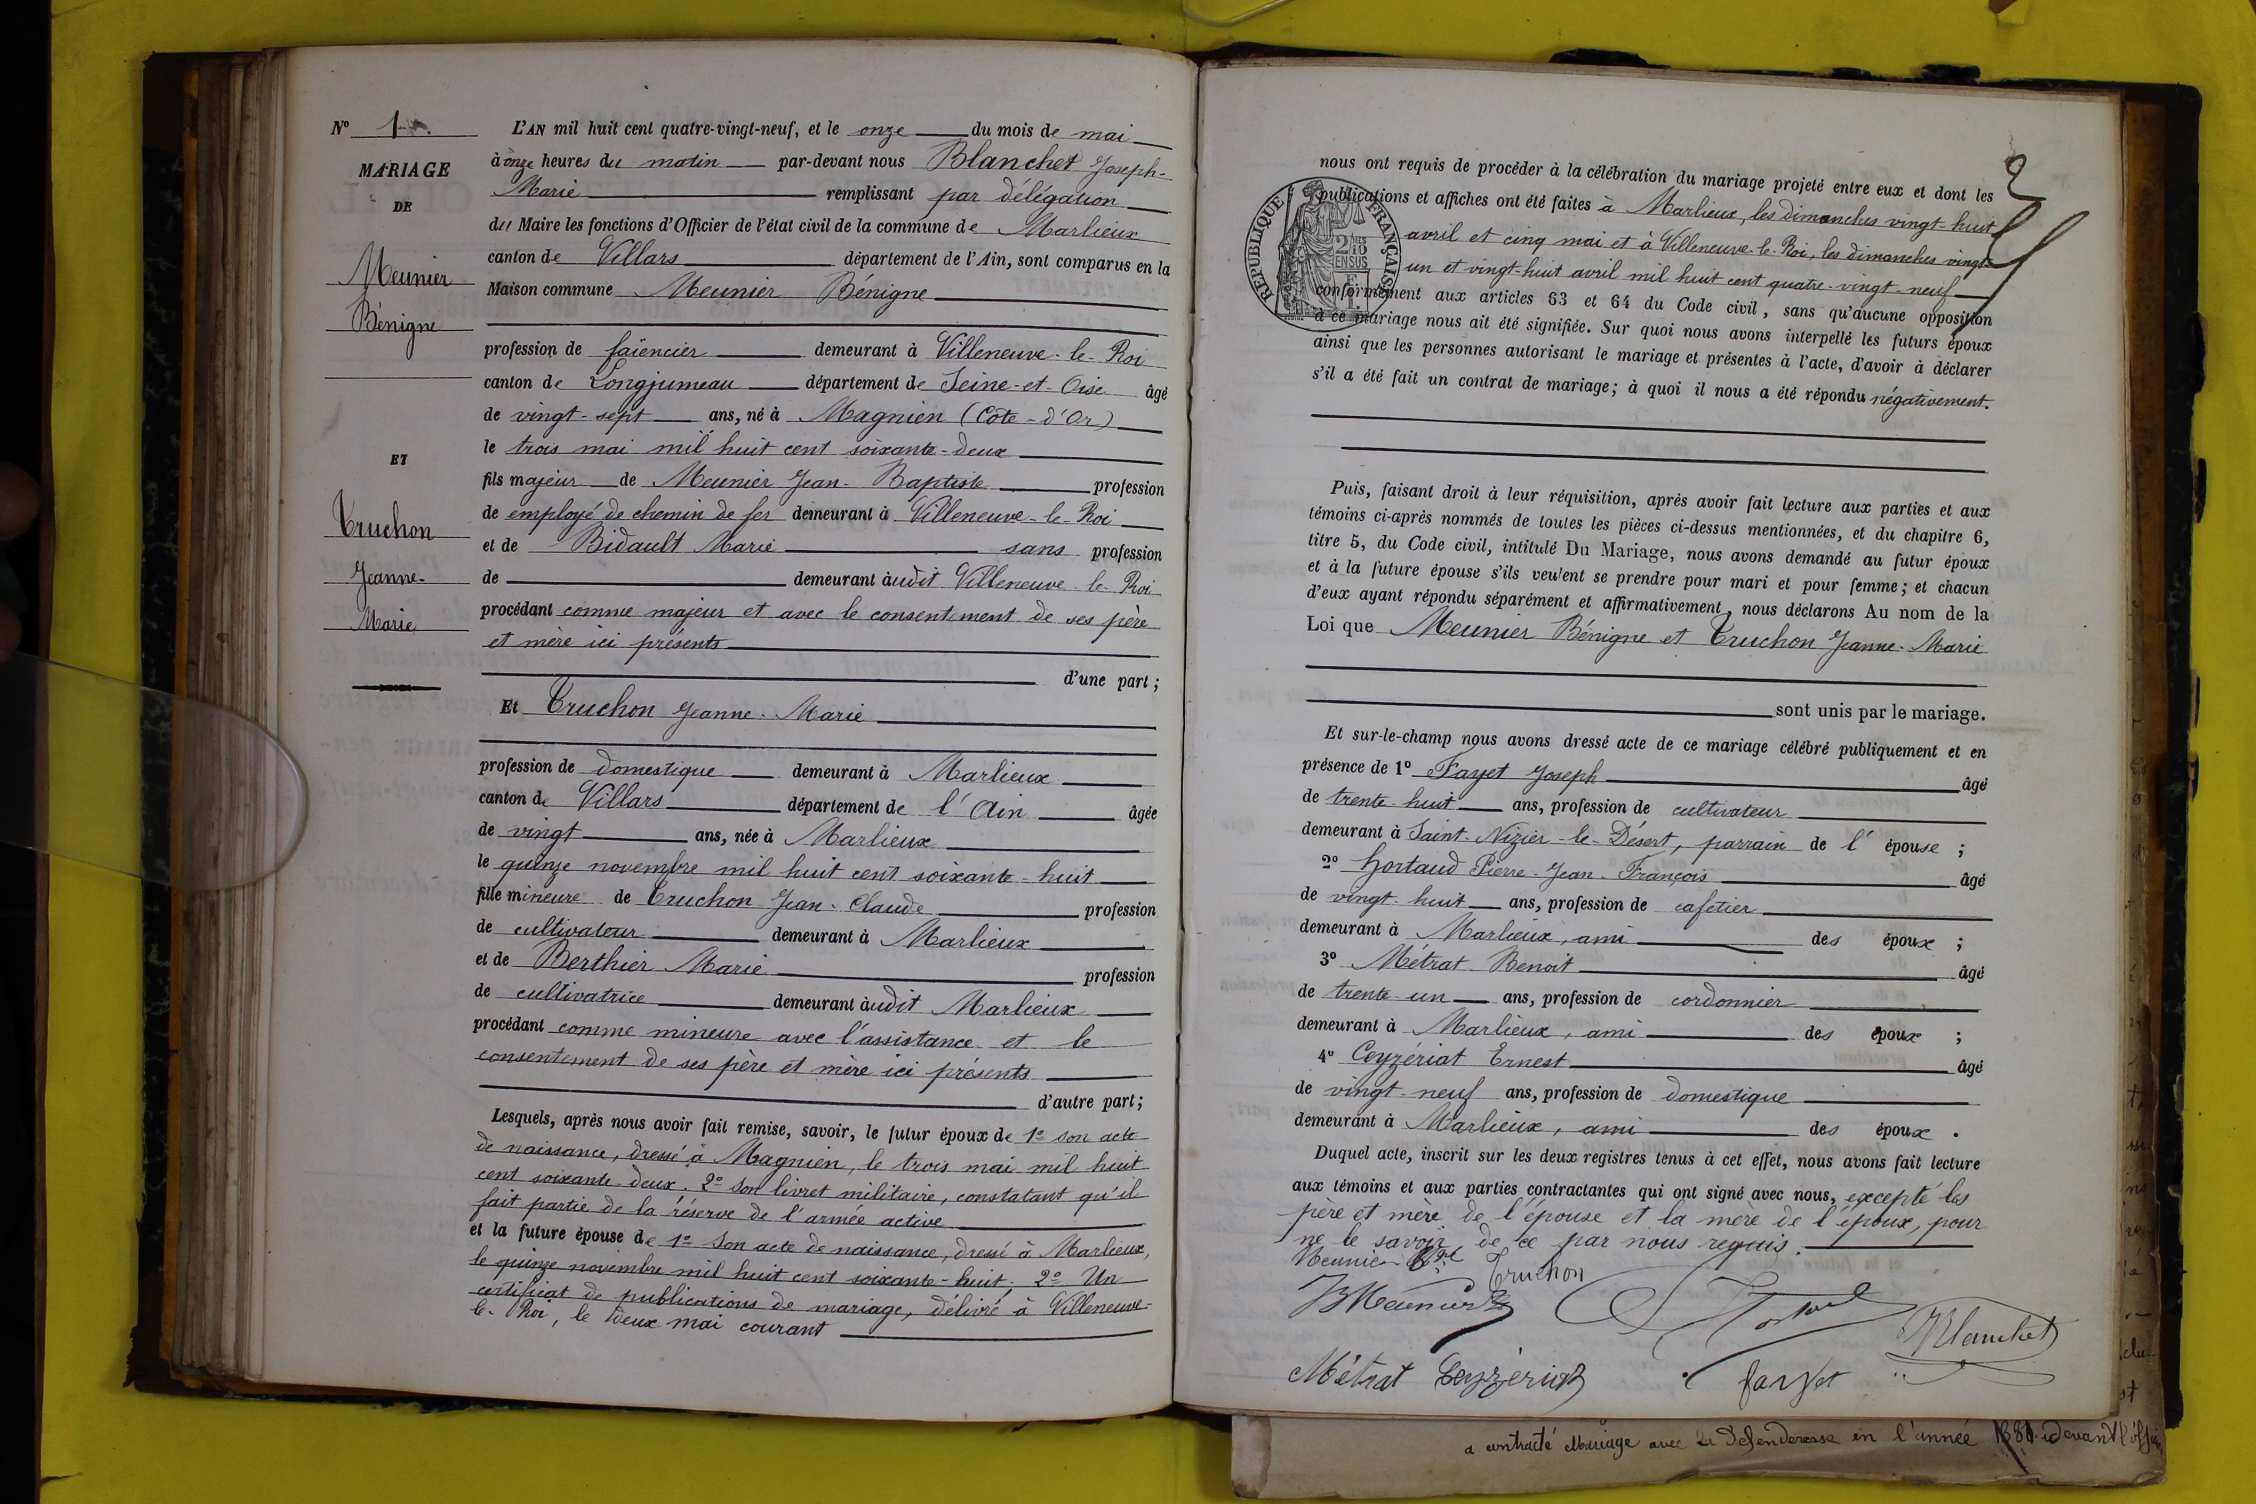 Nº 1
MARIAGE
DE
Meunier
Bénigne
ET
Truchon
Jeanne-
Marie
L'AN mil huit cent quatre-vingt-neuf, et le onze du mois de mai
à onze heures du matin par-devant nous Blanchet Joseph-
Marie remplissant par délégation
du Maire les fonctions d'Officier de l'état civil de la commune de Marlieux
canton de Villars département de l'Ain, sont comparus en la
Maison commune Meunier Bénigne
profession de faïencier demeurant à Villeneuve-le-Roi
canton de Longjumeau département de Seine-et-Oise âgé
de vingt-sept ans, né à Magnien (Côte-d'Or)
le trois mai mil huit cent soixante-deux
fils majeur de Meunier Jean-Baptiste profession
de employé de chemin de fer demeurant à Villeneuve-le-Roi
et de Bidault Marie sans profession
de demeurant àudit Villeneuve-le-Roi
procédant comme majeur et avec le consentement de ses père
et mère ici présents
d'une part;
Et Truchon Jeanne-Marie
profession de domestique demeurant à Marlieux
canton de Villars département de l'Ain âgée
de vingt ans, née à Marlieux
le quinze novembre mil huit cent soixante-huit
fille mineure de Truchon Jean-Claude profession
de cultivateur demeurant à Marlieux
et de Berthier Marie profession
de cultivatrice demeurant àudit Marlieux
procédant comme mineure avec l'assistance et le
consentement de ses père et mère ici présents
d'autre part;
Lesquels, après nous avoir fait remise, savoir, le futur époux de 1º son acte
de naissance, dressé à Magnien, le trois mai mil huit
cent soixante-deux. 2º Son livret militaire, constatant qu'il
fait partie de la réserve de l'armée active
et la future épouse de 1º Son acte de naissance, dressé à Marlieux,
le quinze novembre mil huit cent soixante-huit; 2º Un
certificat de publications de mariage, délivré à Villeneuve-
le-Roi, le deux mai courant
2
nous ont requis de procéder à la célébration du mariage projeté entre eux et dont les
publications et affiches ont été faites à Marlieux, les dimanches vingt-huit
avril et cinq mai et à Villeneuve-le-Roi, les dimanches vingt-
un et vingt-huit avril mil huit cent quatre-vingt-neuf
conformément aux articles 63 et 64 du Code civil, sans qu'aucune opposition
à ce mariage nous ait été signifiée. Sur quoi nous avons interpellé les futurs époux
ainsi que les personnes autorisant le mariage et présentes à l'acte, d'avoir à déclarer
s'il a été fait un contrat de mariage; à quoi il nous a été répondu négativement.
RÉPUBLIQUE FRANÇAISE
Puis, faisant droit à leur réquisition, après avoir fait lecture aux parties et aux
témoins ci-après nommés de toutes les pièces ci-dessus mentionnées, et du chapitre 6,
titre 5, du Code civil, intitulé Du Mariage, nous avons demandé au futur époux
et à la future épouse s'ils veulent se prendre pour mari et pour femme; et chacun
d'eux ayant répondu séparément et affirmativement, nous déclarons Au nom de la
Loi que Meunier Bénigne et Truchon Jeanne-Marie
sont unis par le mariage.
Et sur-le-champ nous avons dressé acte de ce mariage célébré publiquement et en
présence de 1º Fayet Joseph âgé
de trente-huit ans, profession de cultivateur
demeurant à Saint-Nizier-le-Désert, parrain de l'épouse;
2º Hortaud Pierre-Jean-François âgé
de vingt-huit ans, profession de cafetier
demeurant à Marlieux, ami des époux;
3º Métrat Benoit âgé
de trente-un ans, profession de cordonnier
demeurant à Marlieux, ami des époux;
4º Ceyzériat Ernest âgé
de vingt-neuf ans, profession de domestique
demeurant à Marlieux, ami des époux.
Duquel acte, inscrit sur les deux registres tenus à cet effet, nous avons fait lecture
aux témoins et aux parties contractantes qui ont signé avec nous, excepté les
père et mère de l'épouse et la mère de l'époux, pour
ne le savoir de ce par nous requis.
Meunier Truchon
Meunier
Blanchet
Métrat Ceyzériat fayet
a contracté Mariage avec la Défenderesse en l'année devant l'offi